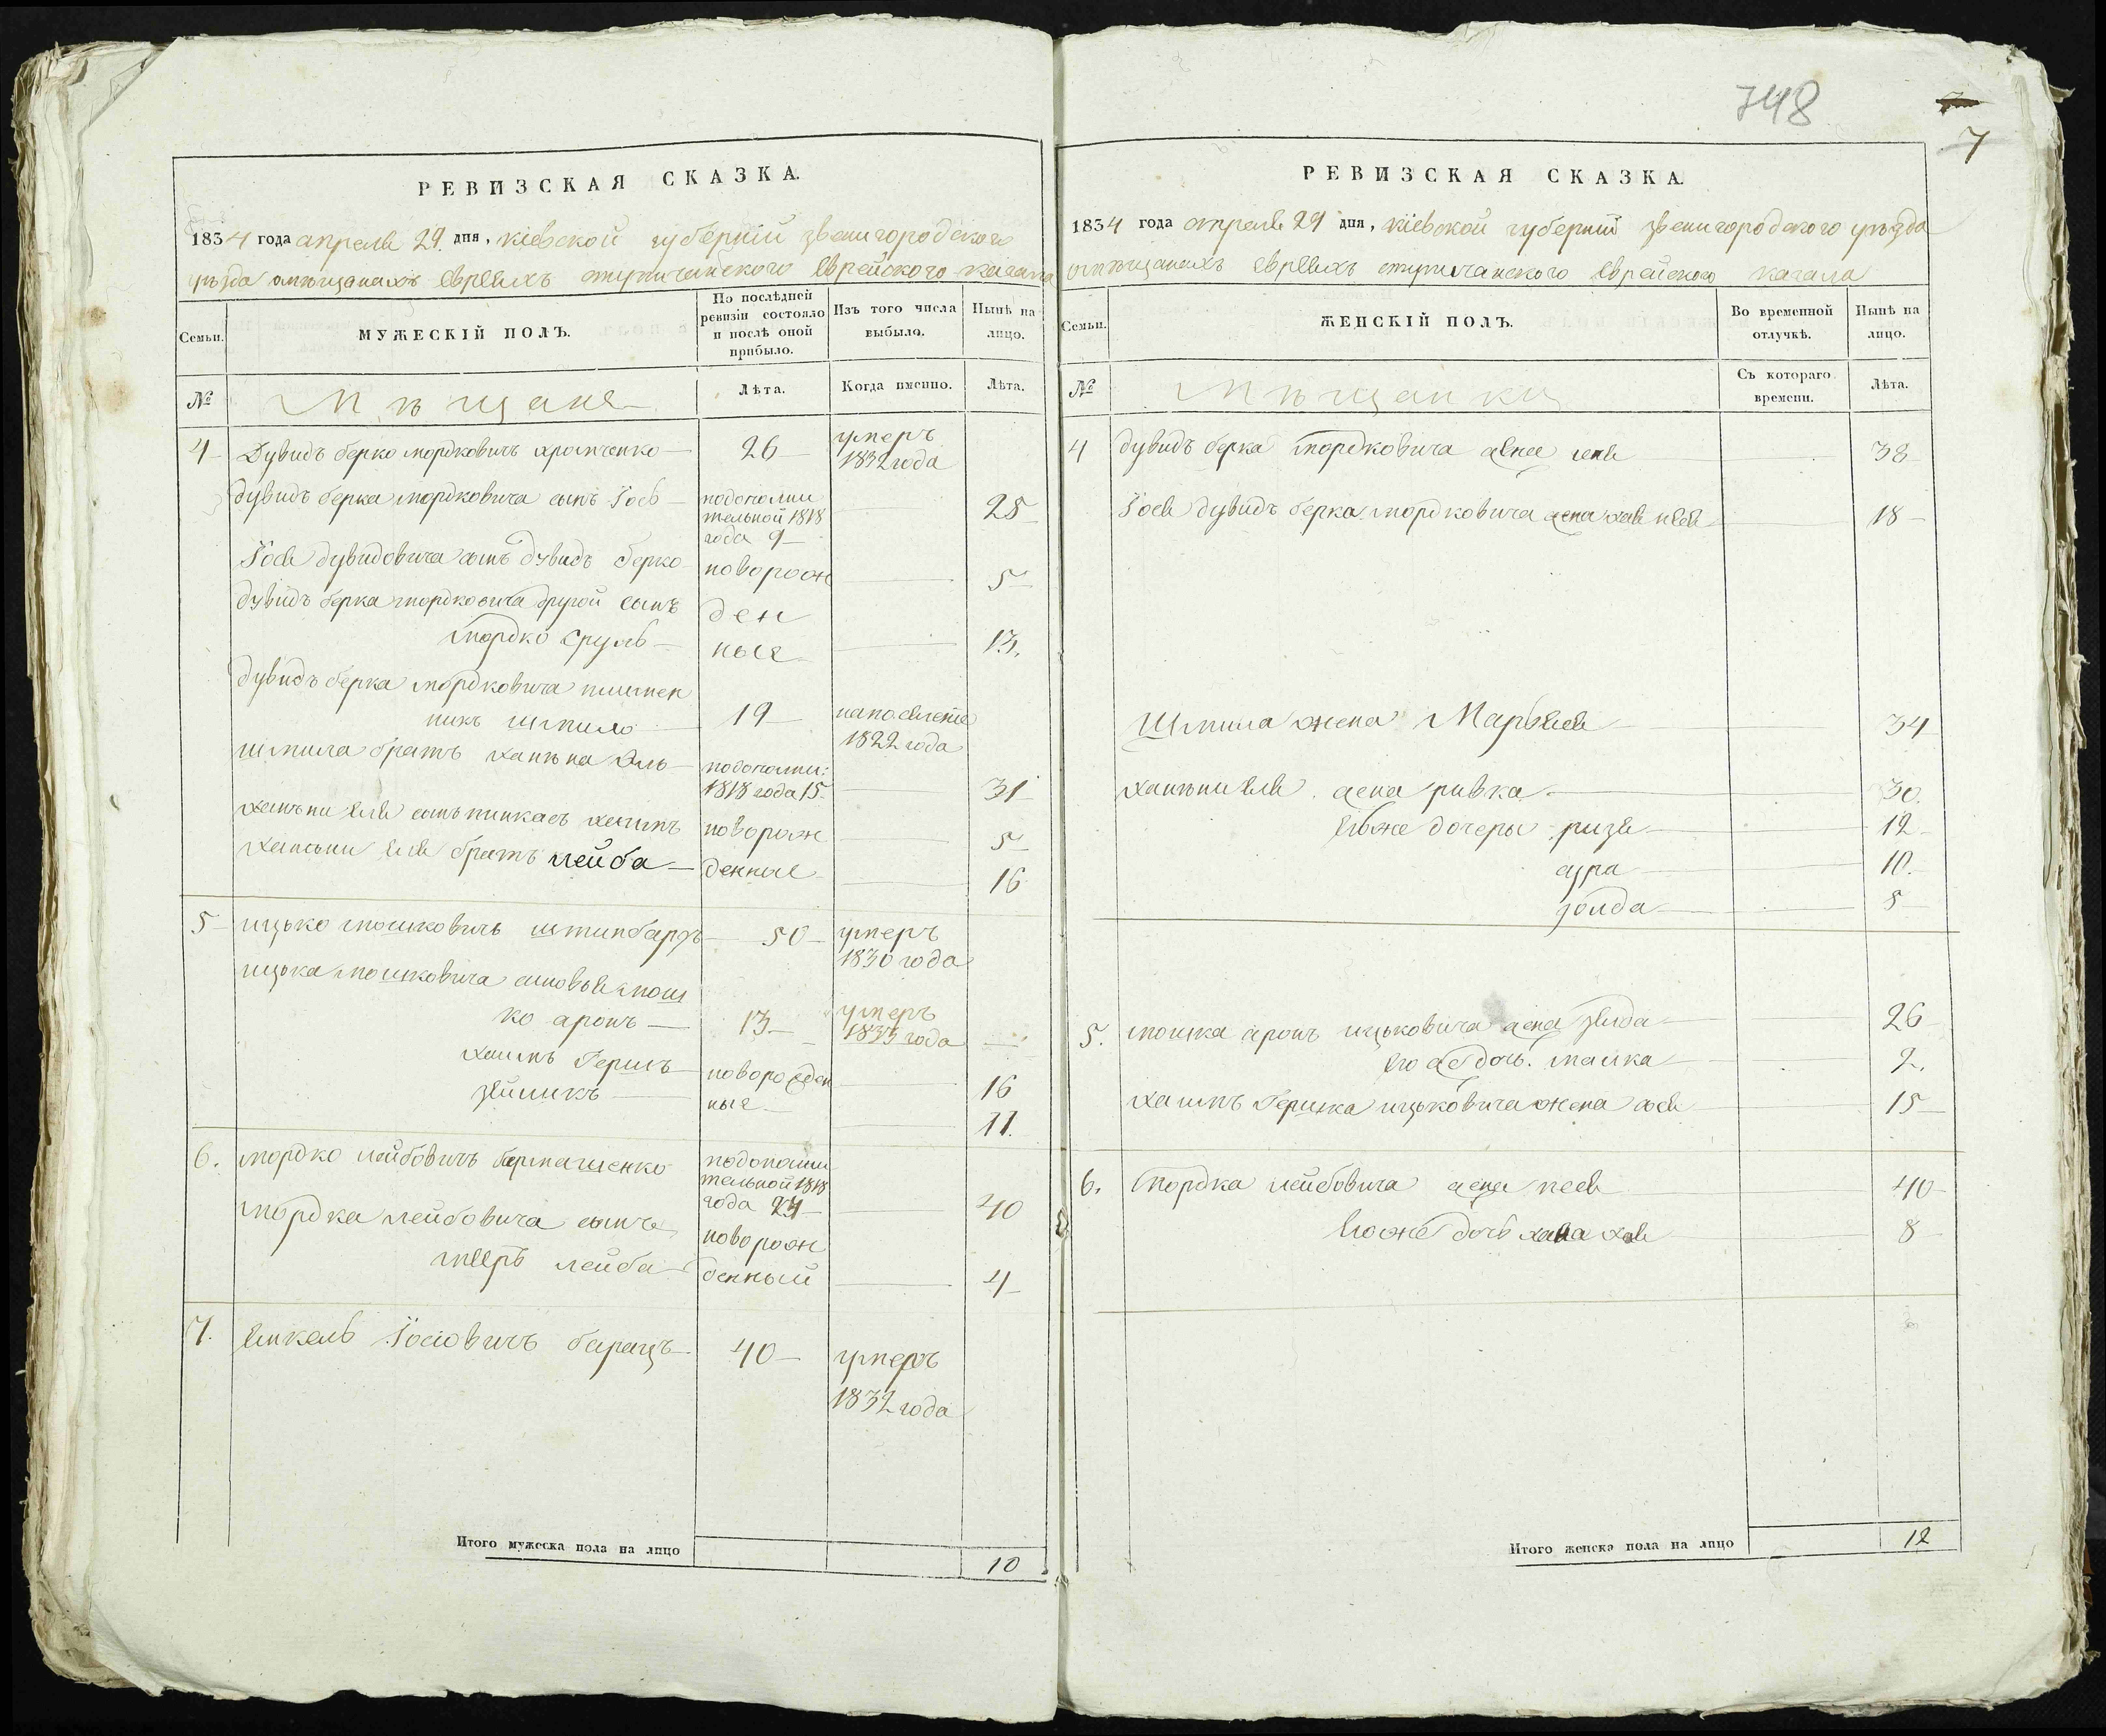 748
7
РЕВИЗСКАЯ СКАЗКА.
1834 года апреля 29 дня, кіевской губерніи звенигородского
уѣзда омѣщанахъ евреяхъ еврейского кагала
Семьи.
МУЖЕСКІЙ ПОЛЪ.
По послѣдней ревизіи состояло и послѣ оной прибыло.
Изъ того числа выбыло.
Нынѣ на лицо.
№
Мѣщане
Лѣта.
Когда именно.
Лѣта.
4 Дувидъ берко мордковичъ хромченко 26 умеръ 1832 года
дувидъ берка мордковича сынъ Іось подополнительной 1818 года 9 25
Іося дувидовича сынъ дувидъ берко новорож 5
дувидъ берка мордковича другой сынъ ден
мордко сруль ные 13
дувидъ берка мордковича племен
никъ шмило 19 1822 года
шмила братъ подополни: 1818 года 15 31
сынъ пинкасъ хаимъ новорож 5
братъ лейба денные 16
5 ицько мошковичъ 50 умеръ 1830 года
ицька мошковича сыновья мош
ко аронъ 13 умеръ 1833 года
хаимъ Гершъ новорожден 16
зейликъ ные 11
6. мордко лейбовичъ подополнительной 1818 года 24 40
мордка лейбовича сынъ новорож
мееръ лейба денный 4
7. Янкель Іосіовичъ 40 умеръ
1832 года
Итого мужеска пола на лицо 10
РЕВИЗСКАЯ СКАЗКА.
1834 года апреля 29 дня, кіевской губерніи звенигородского уѣзда
омѣщанахъ евреяхъ еврейского кагала
Семьи.
ЖЕНСКІЙ ПОЛЪ.
Во временной отлучкѣ.
Нынѣ на лицо.
№
Мѣщанки
Съ котораго времени.
Лѣта.
4 дувидъ берка мордковича жена 38
Іося дувидъ берка мордковича жена 18
Шмила жена 34
жена ривка 30
егоже дочеры 12
10
золда 5
5. мошка аронъ ицьковича жена 26
егоже дочь 2
хаимъ Гершка ицьковича жена 15
6. мордка лейбовича жена песя 40
егоже дочь 8
Итого женска пола на лицо 12